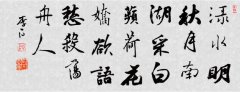 渌水明
秋月南
湖采白
蘋荷花
嬌欲語
愁殺蕩
舟人